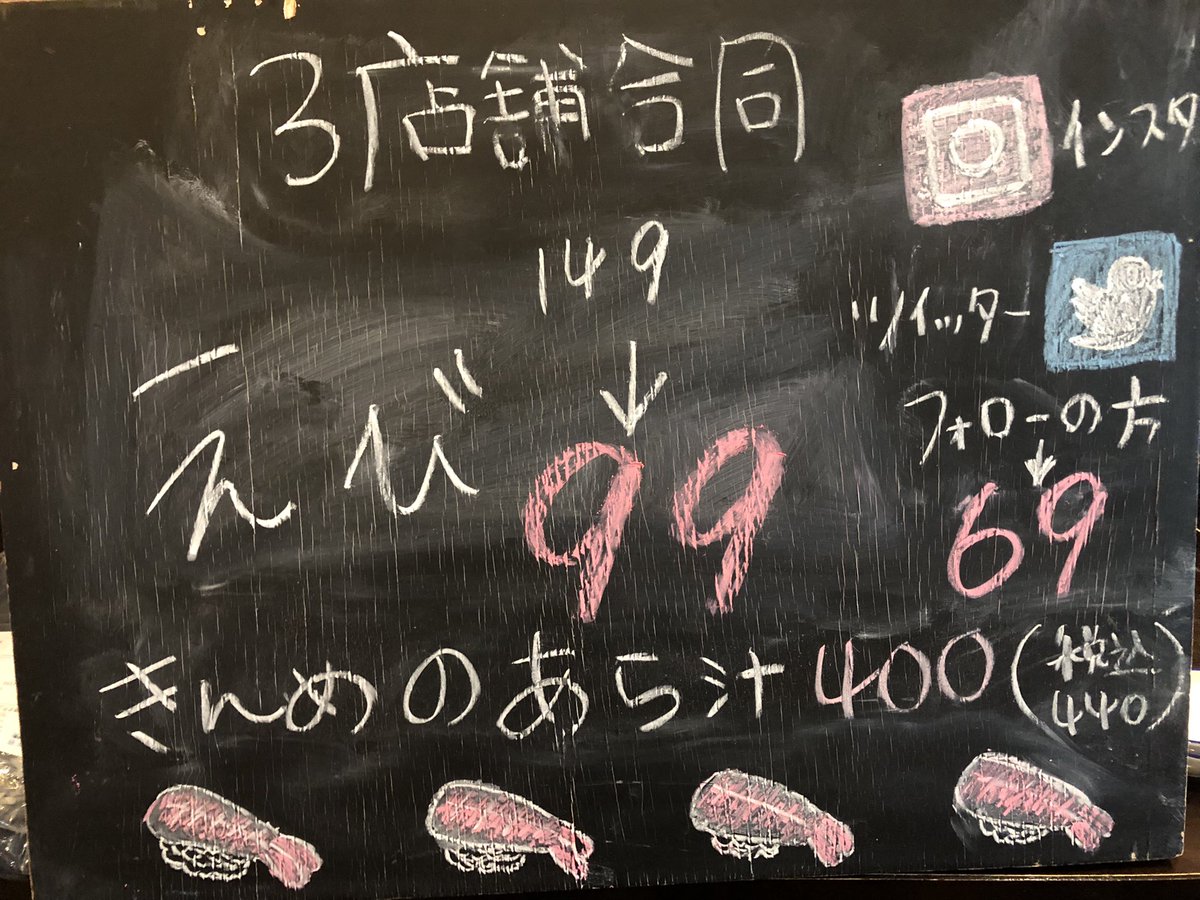 3店舗合同
インスタ
149
ツイッター
↓
フォローの方
えび 99
↓
69
きんめのあら汁 400 (税込 440)